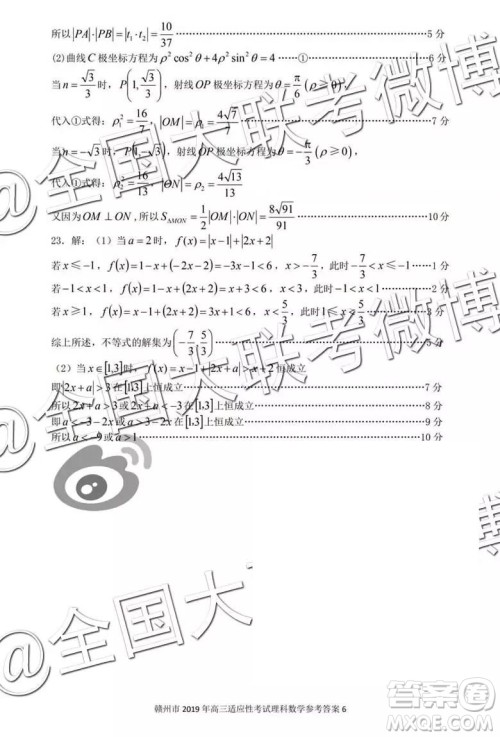 所以|PA|·|PB|=|t₁·t₂|=10/37 ……5 分
(2)曲线 C 极坐标方程为ρ²cos²θ+4ρ²sin²θ=4 ……①……6 分
当 n=√3/3 时，P(1,√3/3)，射线 OP 极坐标方程为θ=π/6(ρ≥0)，
代入①式得：ρ₁²=16/7，|OM|=ρ₁=4√7/7
当 n=-√3 时，P(1,-√3)，射线 OP 极坐标方程为θ=-π/3(ρ≥0)，
代入①式得：ρ₂²=16/13，|ON|=ρ₂=4√13/13
又因为 OM⊥ON，所以 S△MON=1/2|OM|·|ON|=8√91/91 ……10 分
23.解：（1）当 a=2 时，f(x)=|x-1|+|2x+2|
若 x≤-1，f(x)=1-x+(-2x-2)=-3x-1<6，x>-7/3，此时：-7/3<x≤-1 ……1 分
若-1<x<1，f(x)=1-x+(2x+2)=x+3<6，x<3，此时：-1<x<1 ……2 分
若 x≥1，f(x)=x-1+(2x+2)=3x+1<6，x<5/3，此时：1≤x<5/3
综上所述，不等式的解集为(-7/3,5/3)
（2）当 x∈[1,3]时，f(x)=x-1+|2x+a|>x+2 恒成立
即|2x+a|>3 在[1,3]上恒成立 ……7 分
所以 2x+a>3 或 2x+a<-3 在[1,3]上恒成立 ……8 分
即 a<-3-2x 或 a>3-2x 在[1,3]上恒成立 ……9 分
所以 a<-9 或 a>1 ……10 分
赣州市 2019 年高三适应性考试理科数学参考答案 6
@全国大联考微博
@全国大联考微博
答案圈